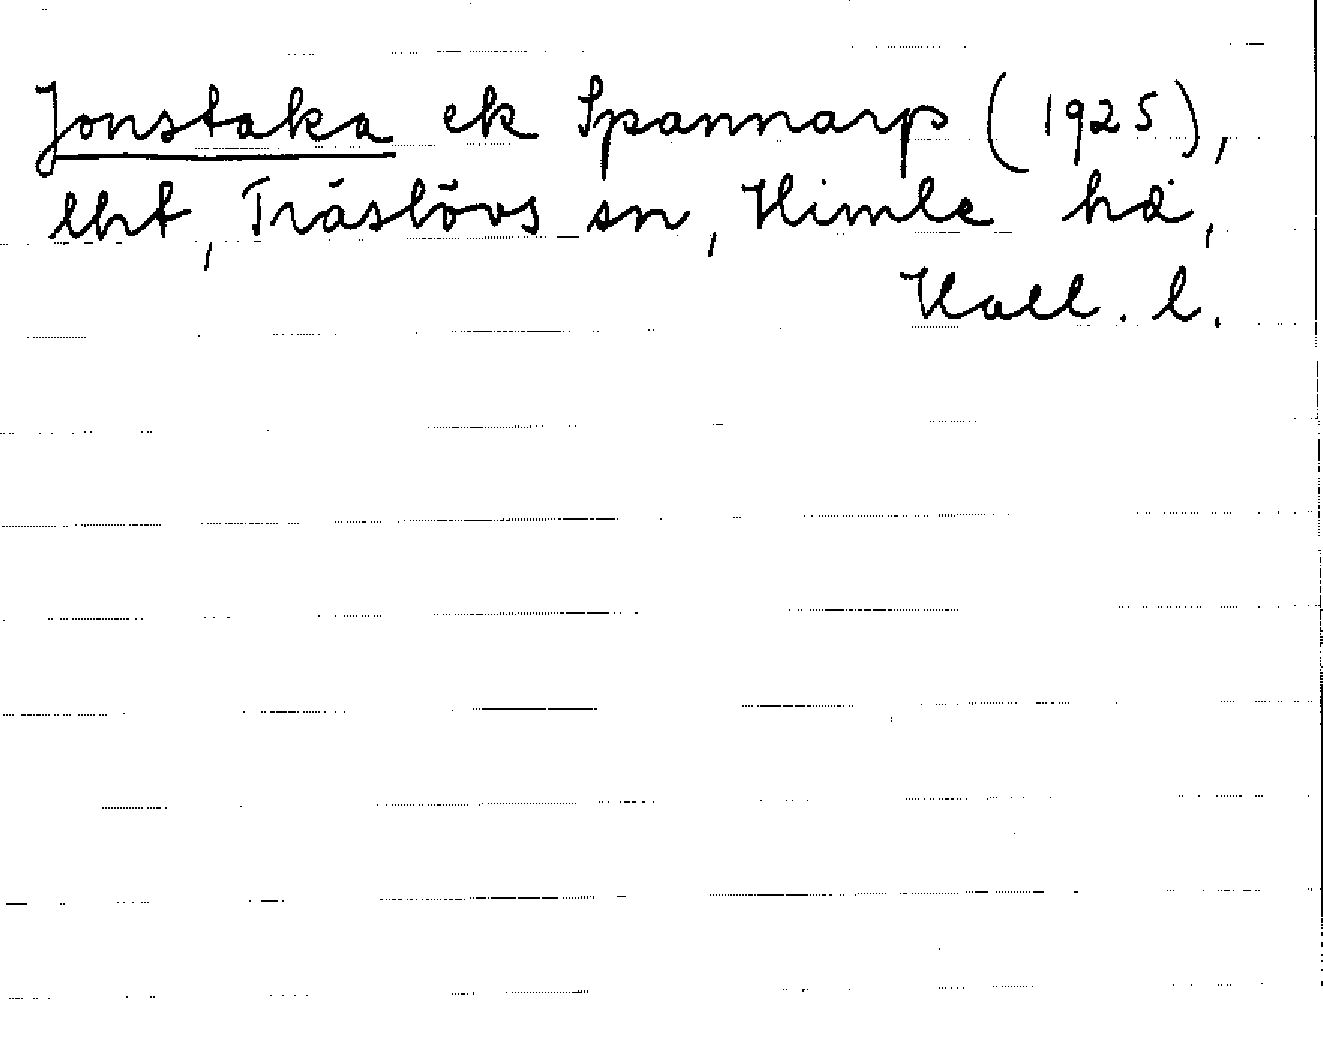 Jonstaka ek Spannarp (1925),
lht, Träslövs sn, Himle hd,
Hall. l.